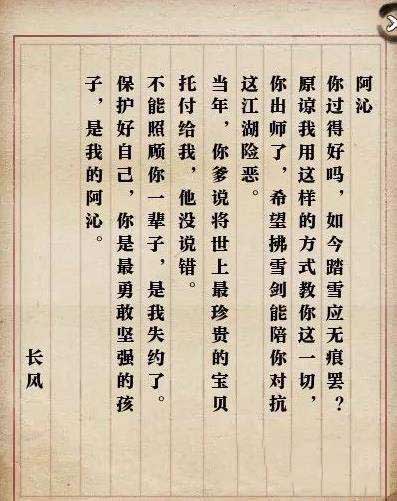 阿沁
你过得好吗，如今踏雪应无痕罢？
原谅我用这样的方式教你这一切，
你出师了，希望拂雪剑能陪你对抗
这江湖险恶。
当年，你爹说将世上最珍贵的宝贝
托付给我，他没说错。
不能照顾你一辈子，是我失约了。
保护好自己，你是最勇敢坚强的孩
子，是我的阿沁。
长风